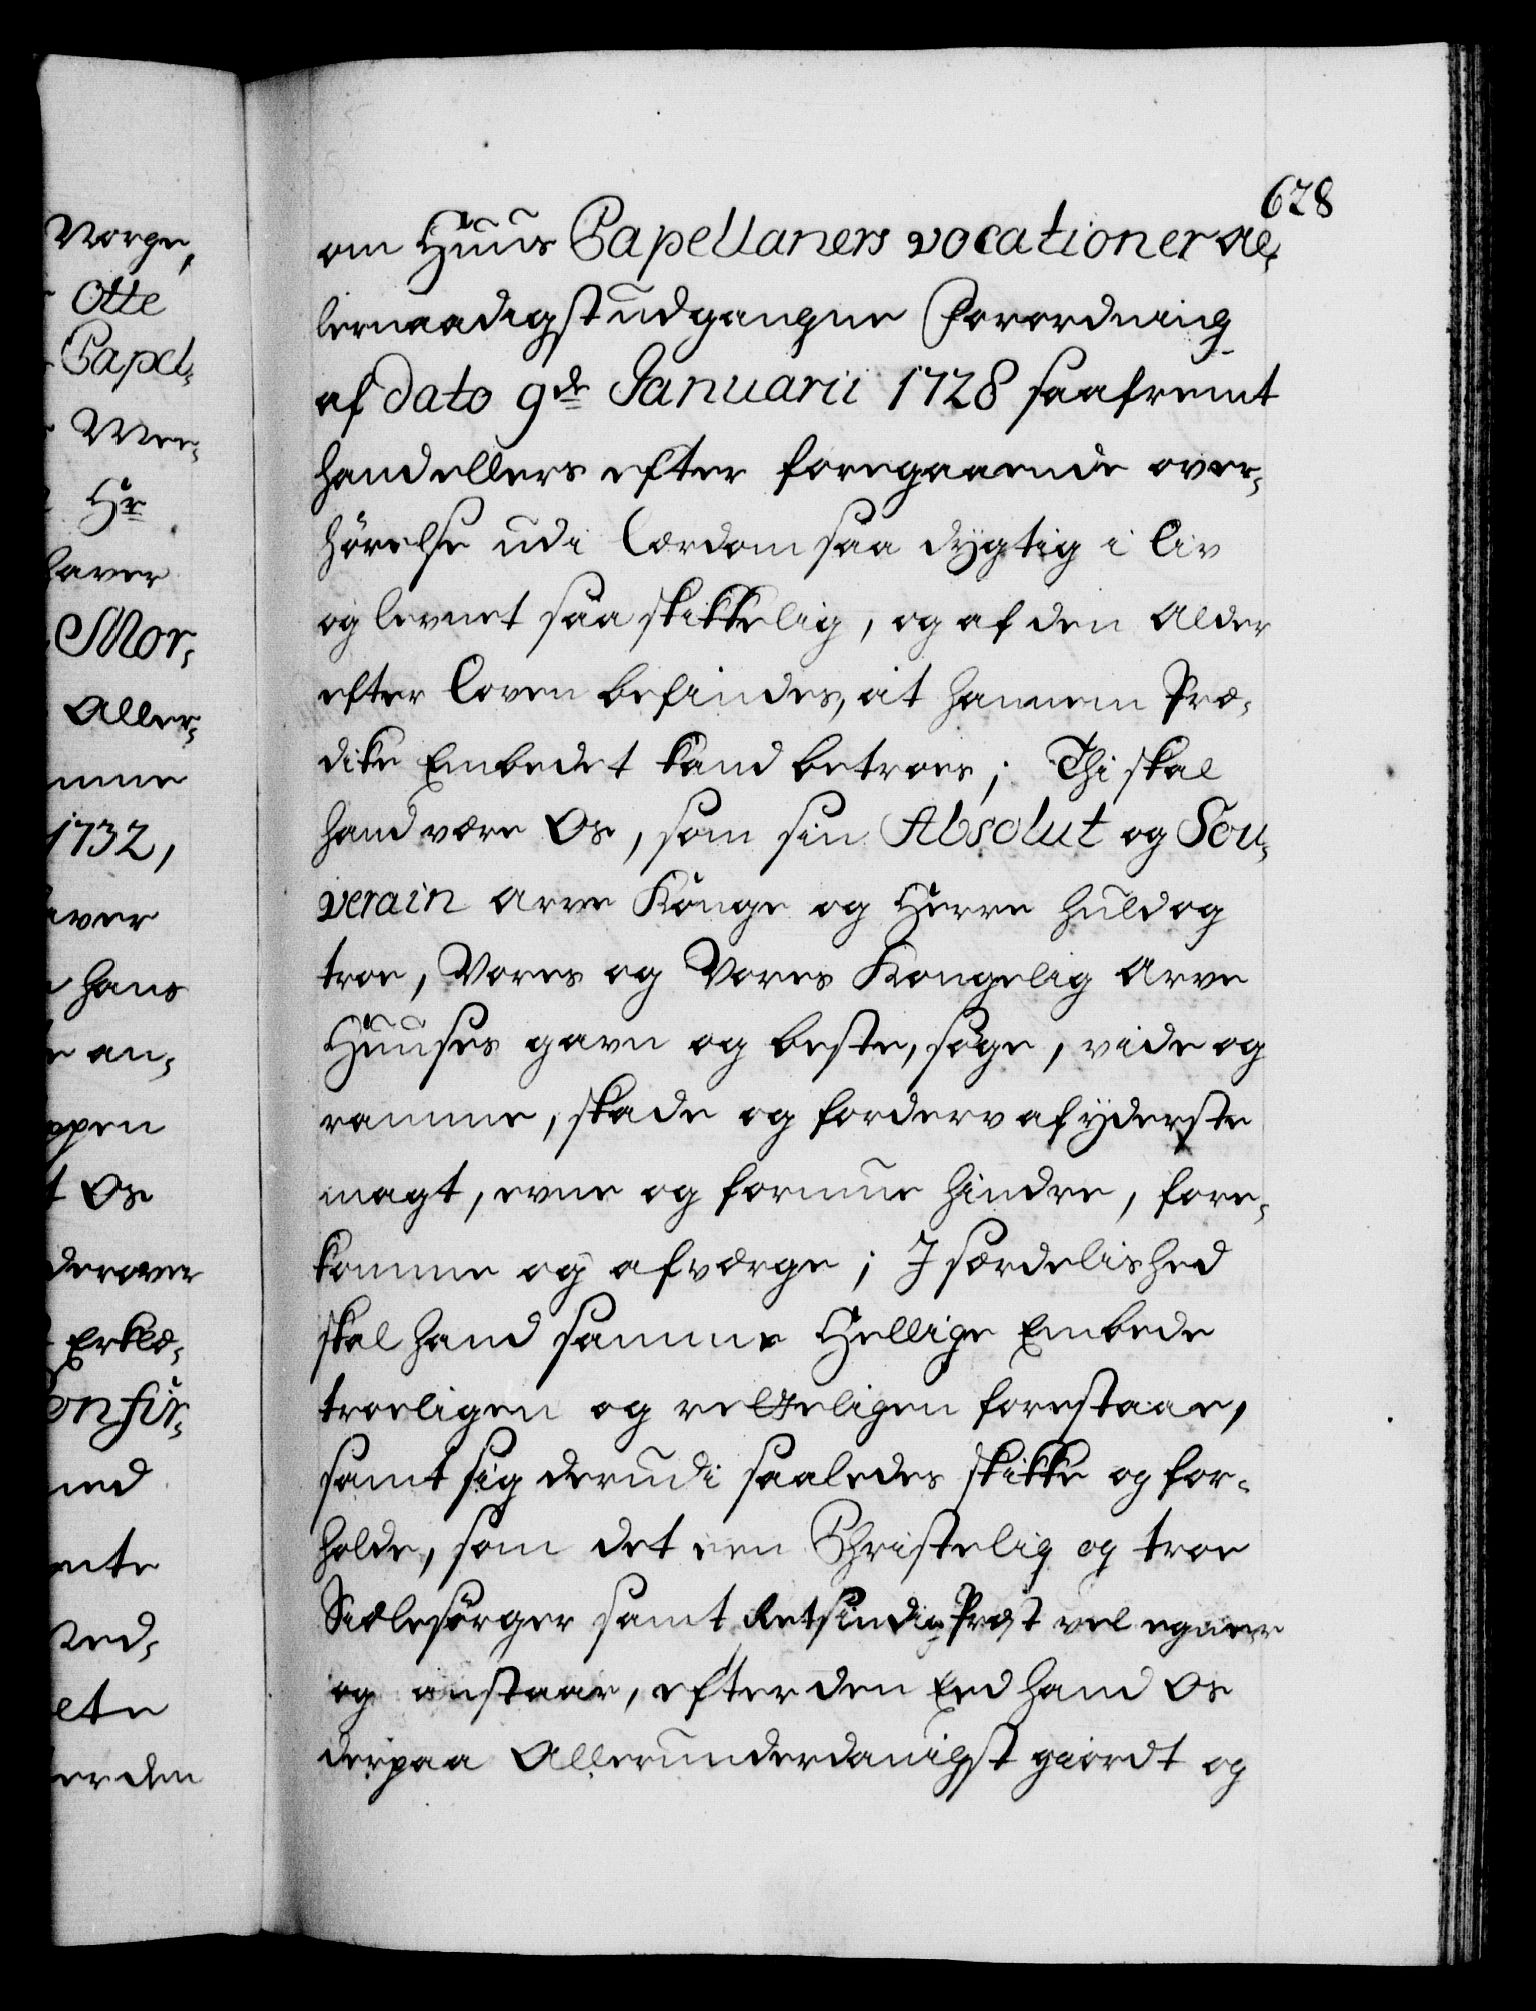 628
om Huus Capellaners vocationer al-
lernaadigst udgangne Forordning
af dato 9de Januarii 1728 saafremt
hand ellers efter foregaaende over-
hörelse udi Lærdom saa dygtig i Liv
og levnet saa skikkelig, og af den Alder
efter Loven befindes, at hannem Præ-
dike Embedet kand betroes; Thi skal
hand være Os, som sin Absolut og Sou-
verain Arve Konge og Herre huld og
troe, Vores og Vores Kongelig Arve
Huuses gavn og beste, söge, vide og
ramme, skade og forderv af yderste
magt, evne og formue hindre, fore-
komme og afværge; I særdelished
skal hand samme Hellige Embede
troeligen og retteligen forestaae,
samt sig derudi saaledes skikke og for-
holde, som det een Christelig og troe
Siælesörger samt Retsindig Præst vel egner
og anstaar, efter den Eed hand Os
derpaa Allerunderdanigst giordt og
Norge,
Otte
Capel-
Hr
haver
Mor-
Aller-
1732,
hans
an-
Os
derover
Erklæ-
Confir-